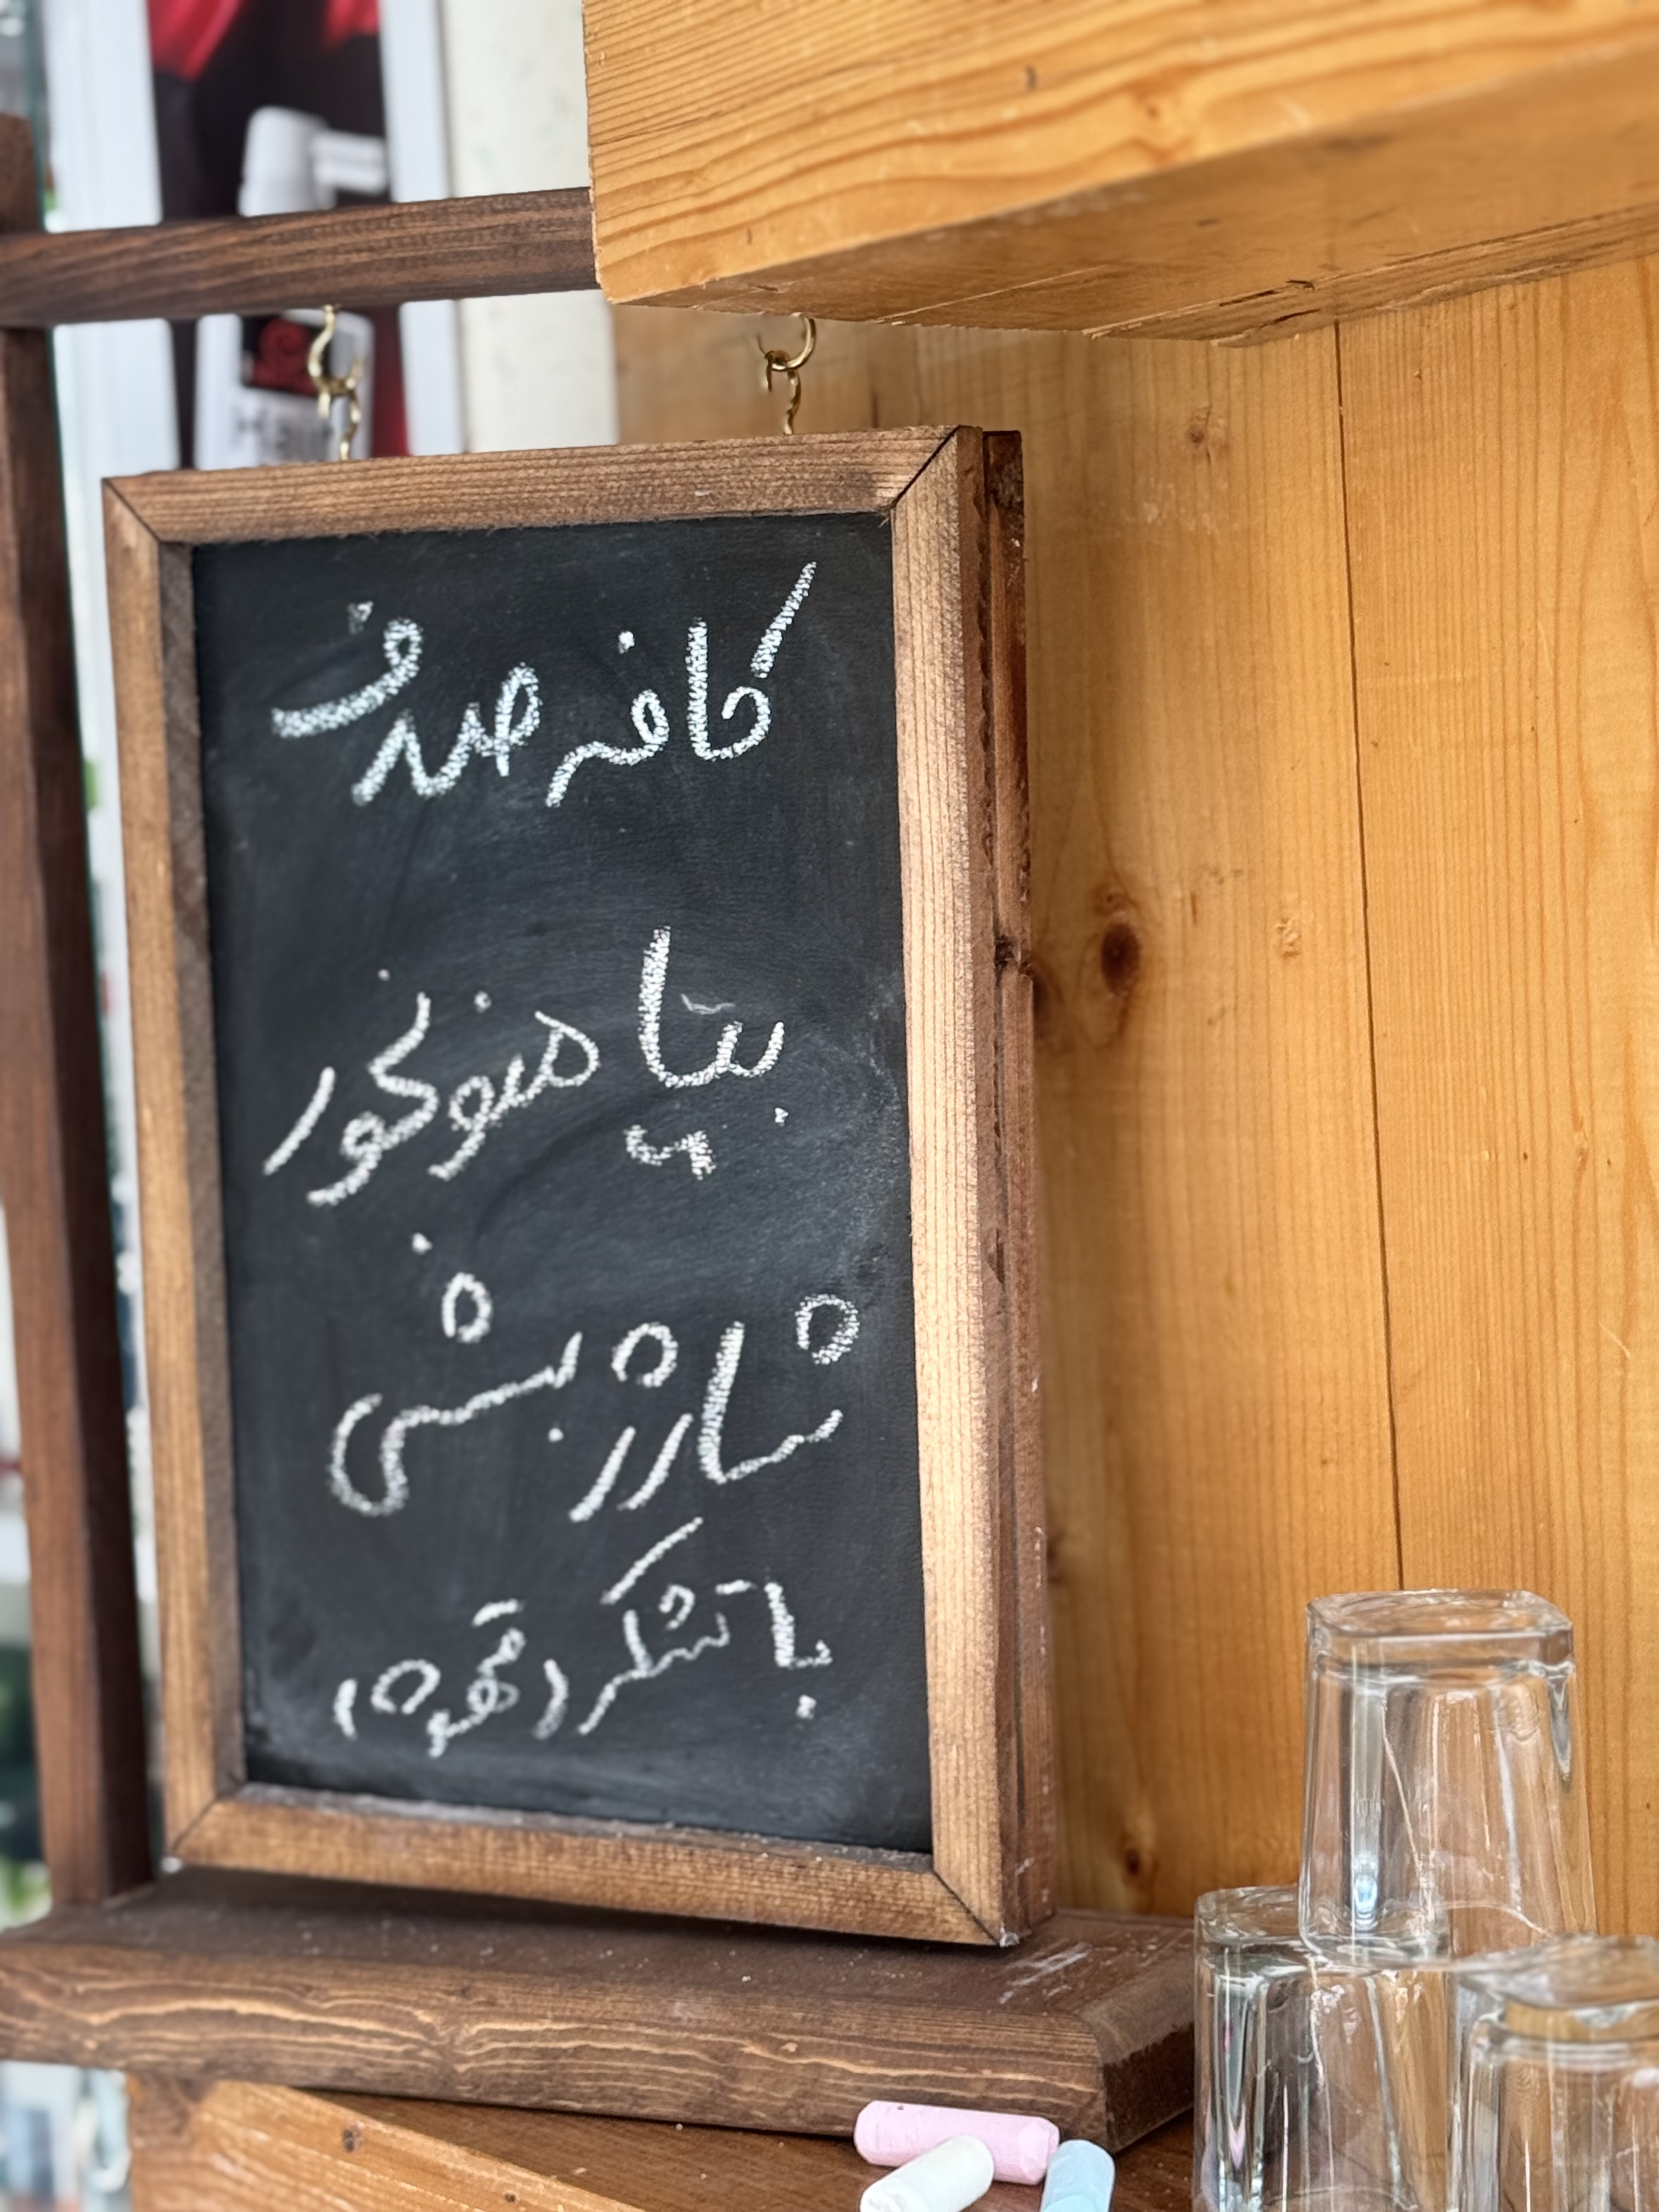 کافه صدف
بیا منو بخور
شارژ بشی
با تشکر (قهوه)